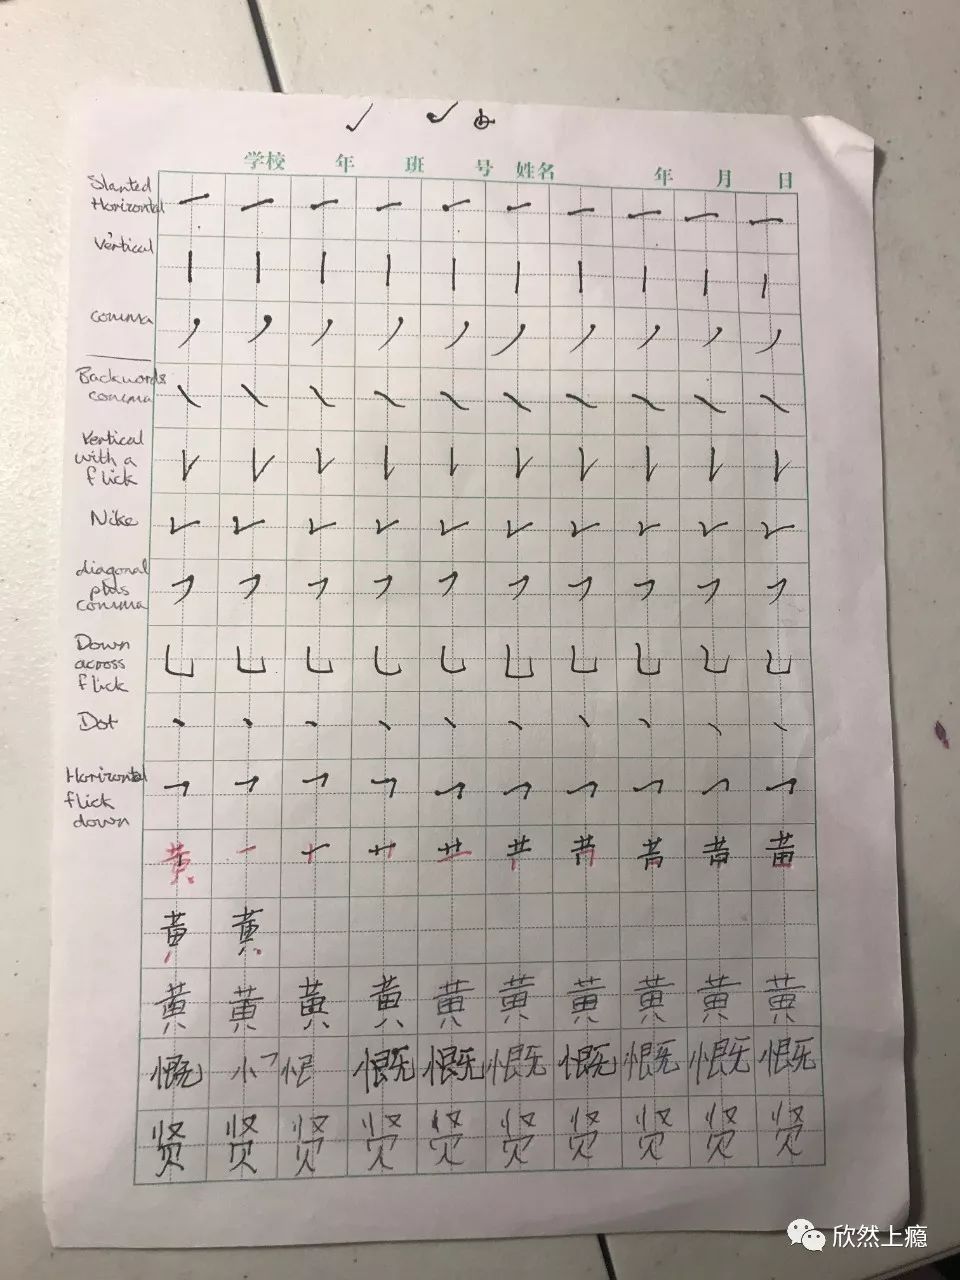 学校 年 班 号 姓名 年 月 日
Slanted
Horizontal
Vertical
comma
Backwords
comma
Vertical
with a
flick
Nike
diagonal
plus
comma
Down
across
flick
Dot
Horizontal
flick
down
黄
黄 黄
黄 黄 黄 黄 黄 黄 黄 黄 黄 黄
慨 慨 慨 慨 慨 慨 慨 慨
贤 贤 贤 贤 贤 贤 贤 贤 贤 贤
欣然上瘾